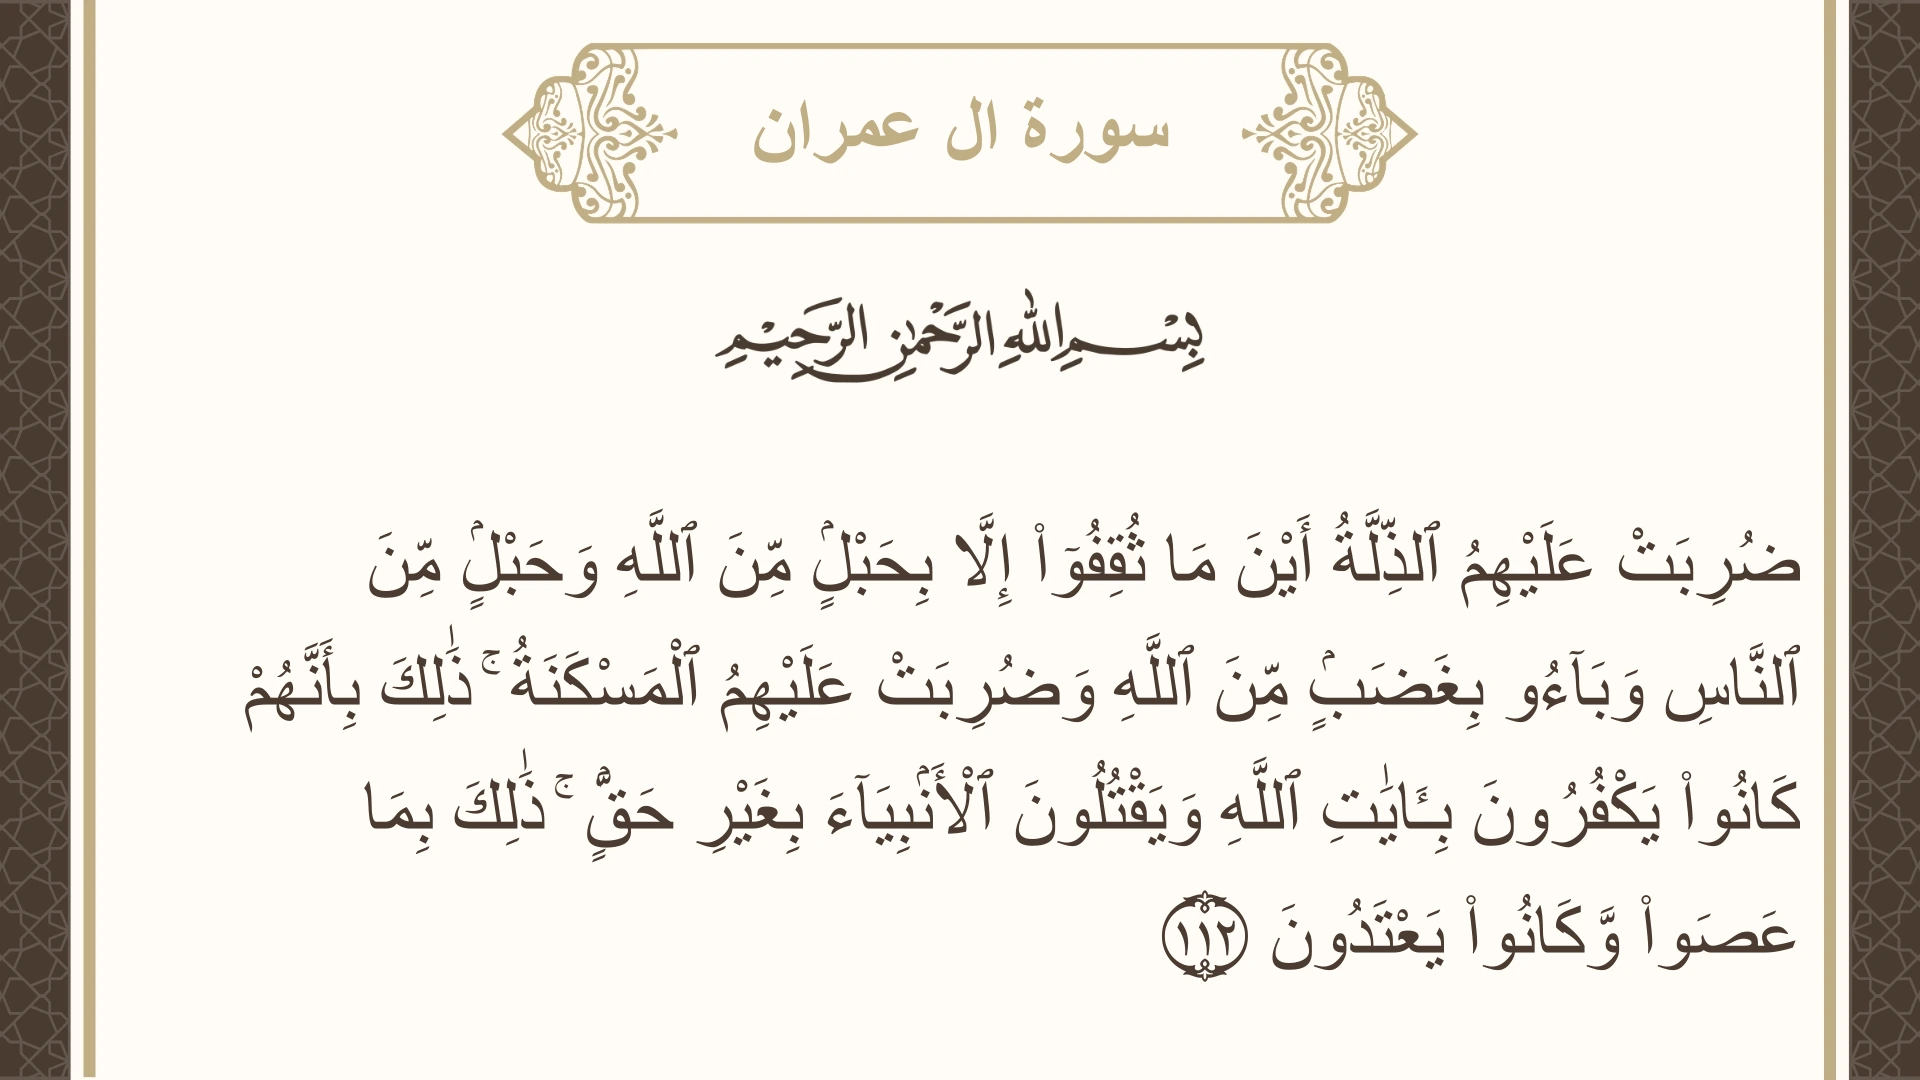 سورة ال عمران
بِسْمِ اللهِ الرَّحْمٰنِ الرَّحِيْمِ
ضُرِبَتْ عَلَيْهِمُ ٱلذِّلَّةُ أَيْنَ مَا ثُقِفُوٓا۟ إِلَّا بِحَبْلٍۢ مِّنَ ٱللَّهِ وَحَبْلٍۢ مِّنَ
ٱلنَّاسِ وَبَآءُو بِغَضَبٍۢ مِّنَ ٱللَّهِ وَضُرِبَتْ عَلَيْهِمُ ٱلْمَسْكَنَةُ ۚ ذَٰلِكَ بِأَنَّهُمْ
كَانُوا۟ يَكْفُرُونَ بِـَٔايَٰتِ ٱللَّهِ وَيَقْتُلُونَ ٱلْأَنۢبِيَآءَ بِغَيْرِ حَقٍّۢ ۚ ذَٰلِكَ بِمَا
عَصَوا۟ وَّكَانُوا۟ يَعْتَدُونَ ١١٢